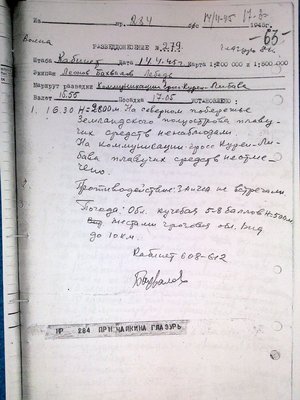 На пр. 284 14/4-45 17-07
-63-
Волна Глазурь
РАЗВЕДДОНЕСЕНИЕ № 279.
Штаба Кабинет Дата 14.4.45г. Карта 1:200 000 и 1:500 000
Экипаж Леонов
Маршрут разведки Коммуникация гросс Курен-Либава
Взлет 15.55 Посадка 17.05 УСТАНОВЛЕНО:
1. 16.30 Н-2800м. На северном побережье
Земландского полуострова плаву-
чих средств не наблюдали
На коммуникации гросс Курен-Ли-
бава плавучих средств не отме-
чено.
Противодействие: ЗА огня не встречали
Погода: Обл. кучевая 5-8 баллов Н-500м
местами грозовая обл. Вид.
до 10 км.
Кабинет 608-612
ПР 284 ПРН.ЧАЙКИНА ГЛАЗУРЬ